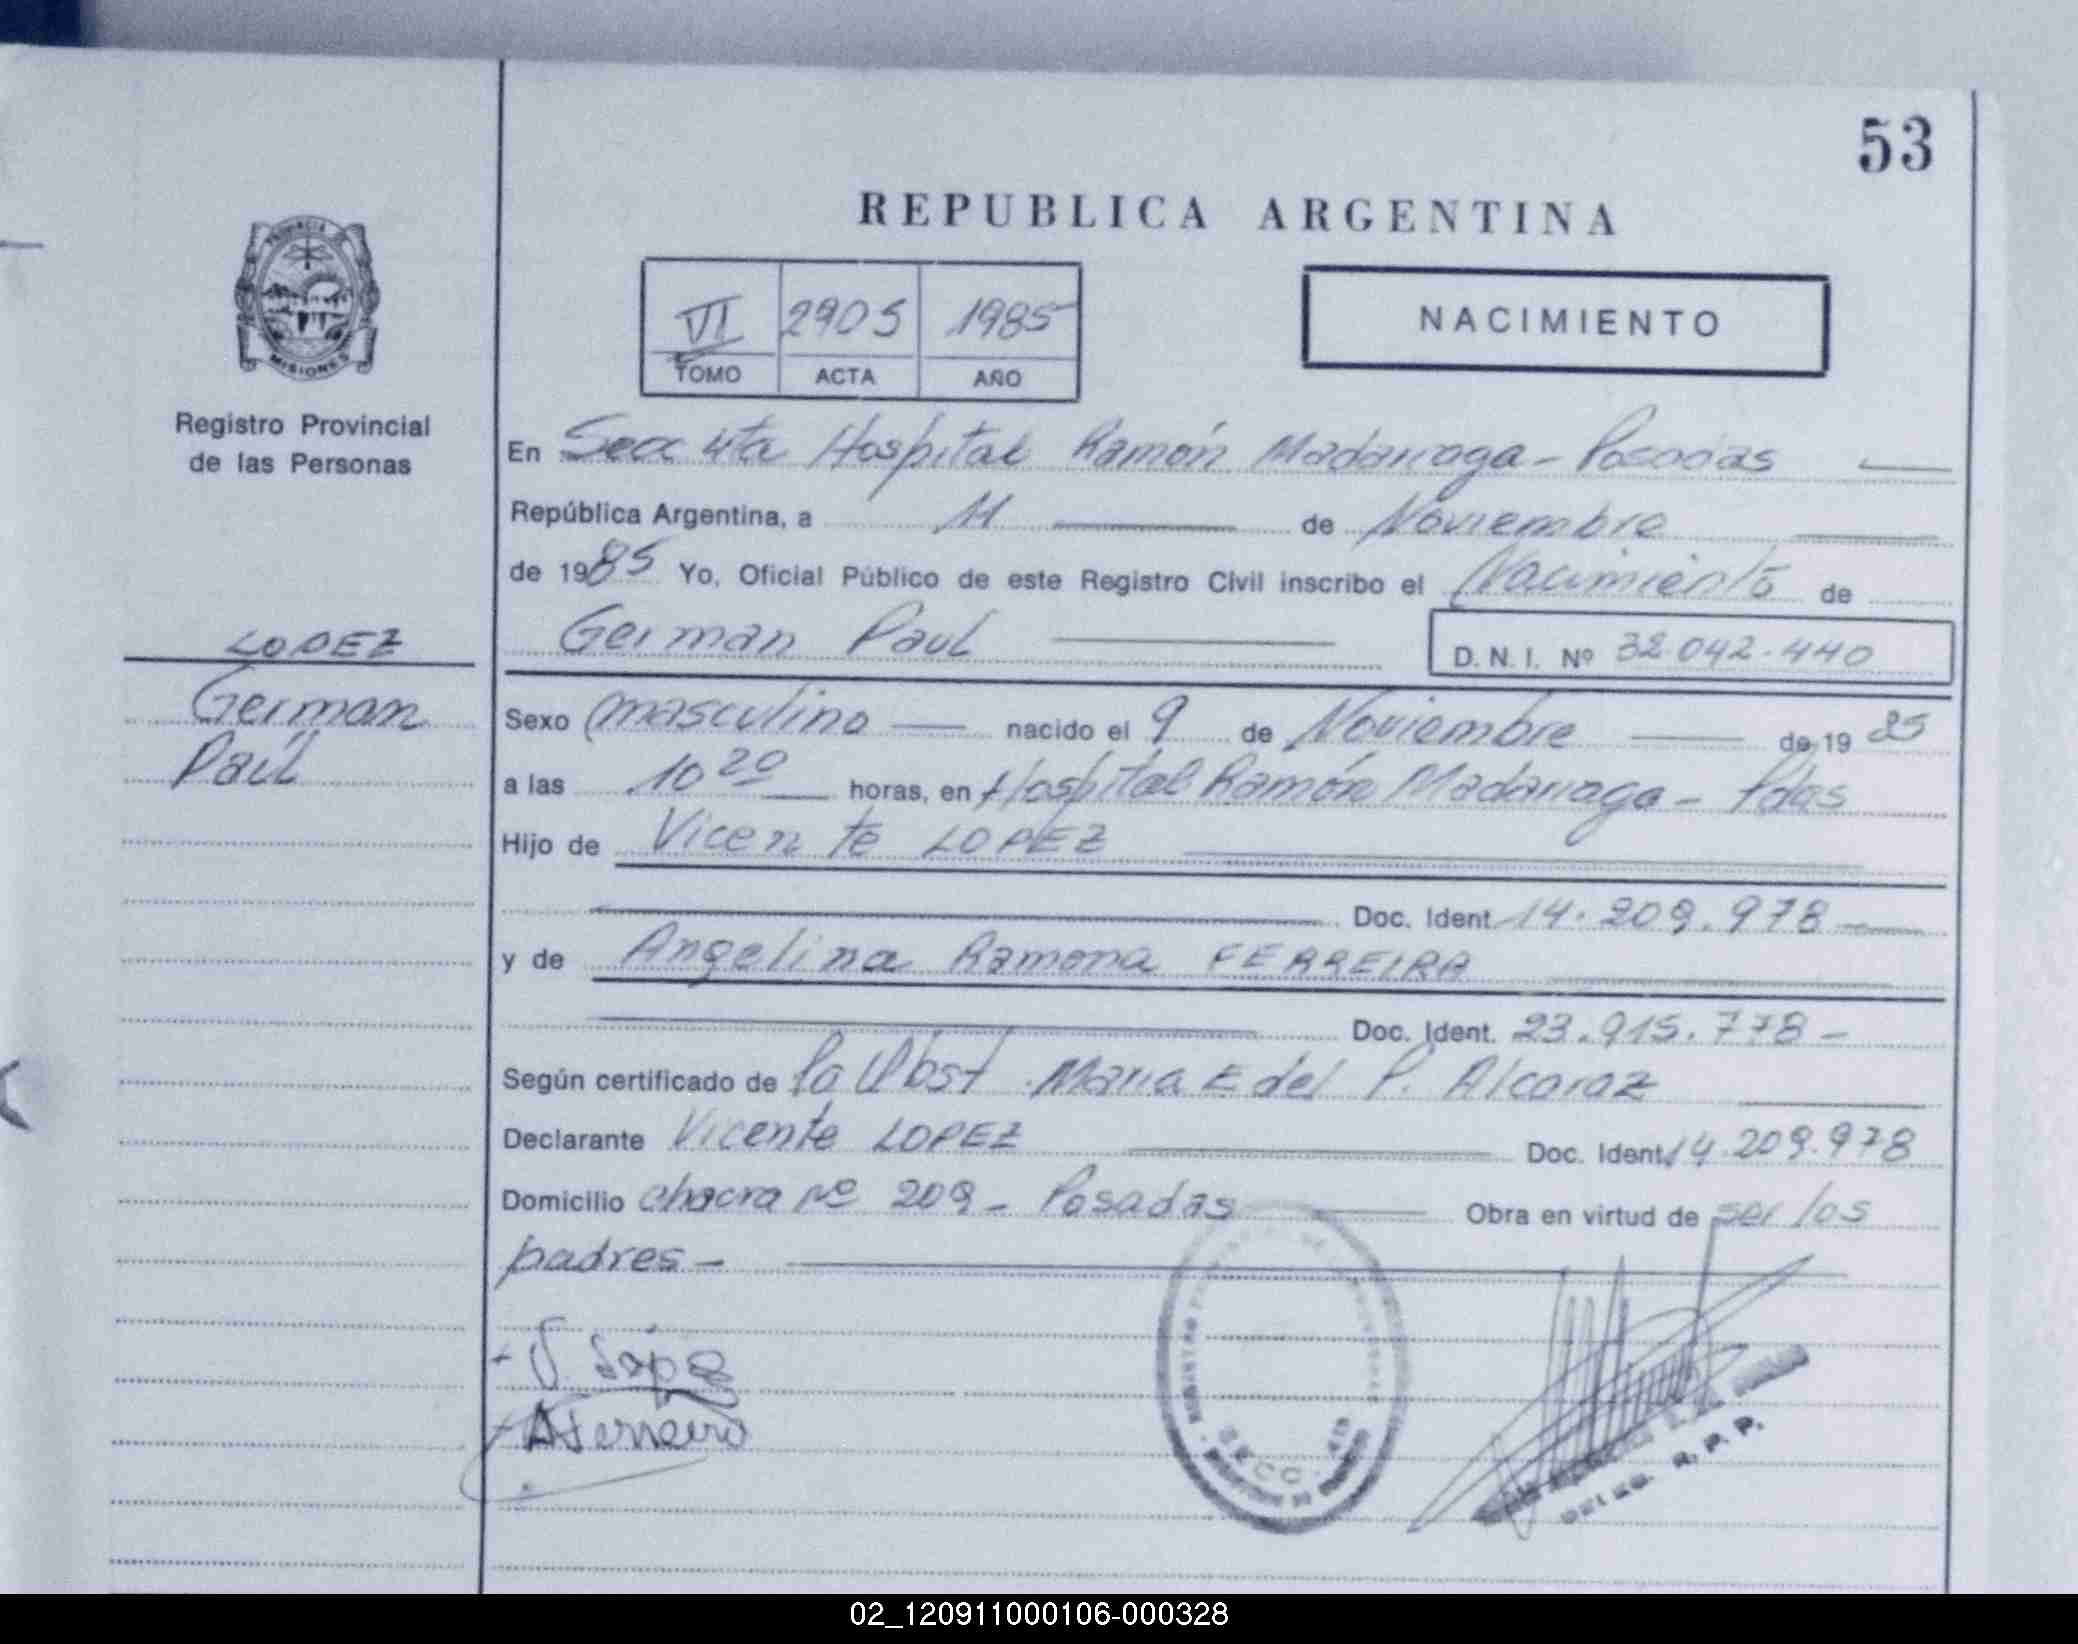 53
REPUBLICA ARGENTINA
VI 2905 1985
TOMO ACTA AÑO
NACIMIENTO
PROVINCIA DE
MISIONES
Registro Provincial
de las Personas
LOPEZ
German
Paúl
En Secc 4ta Hospital Ramón Madariaga - Posadas
República Argentina, a 11 de Noviembre
de 1985 Yo, Oficial Público de este Registro Civil inscribo el Nacimiento de
German Paul D.N.I. Nº 32.042.440
Sexo masculino nacido el 9 de Noviembre de 19 85
a las 10 20 horas, en Hospital Ramón Madariaga - Pdas
Hijo de Vicente LOPEZ
Doc. Ident. 14.209.978
y de Angelina Ramona FERREIRA
Doc. Ident. 23.915.778 -
Según certificado de la Obst. Maria E del P. Alcaraz
Declarante Vicente LOPEZ Doc. Ident. 14.209.978
Domicilio chacra Nº 209 - Posadas Obra en virtud de ser los
padres -
V. Lopez
A Ferreira
SECC. 4ta
R. P. P.
02_120911000106-000328